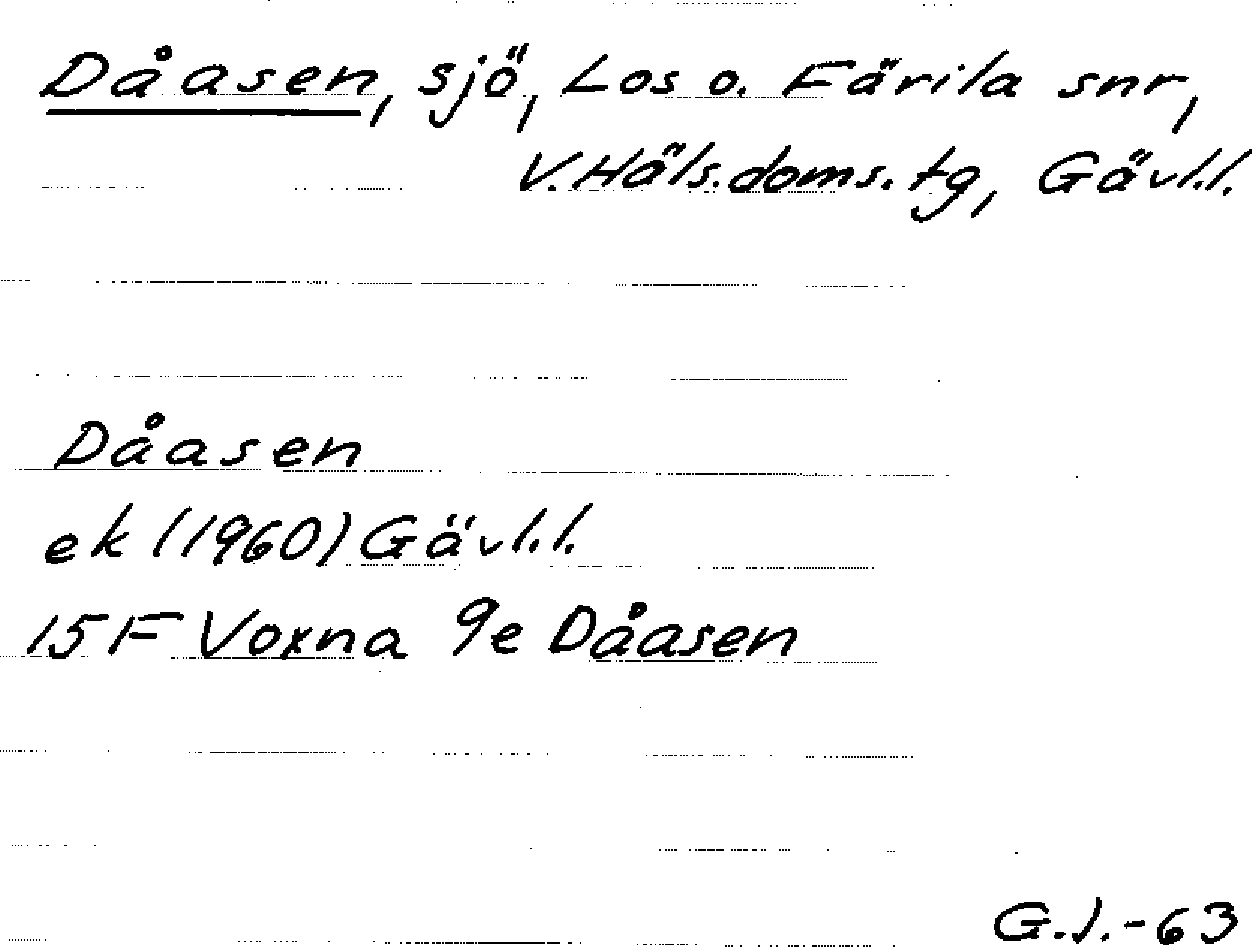 Dåasen, sjö, Los o. Färila snr,
V. Häls. doms. tg, Gävl.l.
Dåasen
ek (1960) Gävl.l.
15F Voxna 9e Dåasen
G.J.-63